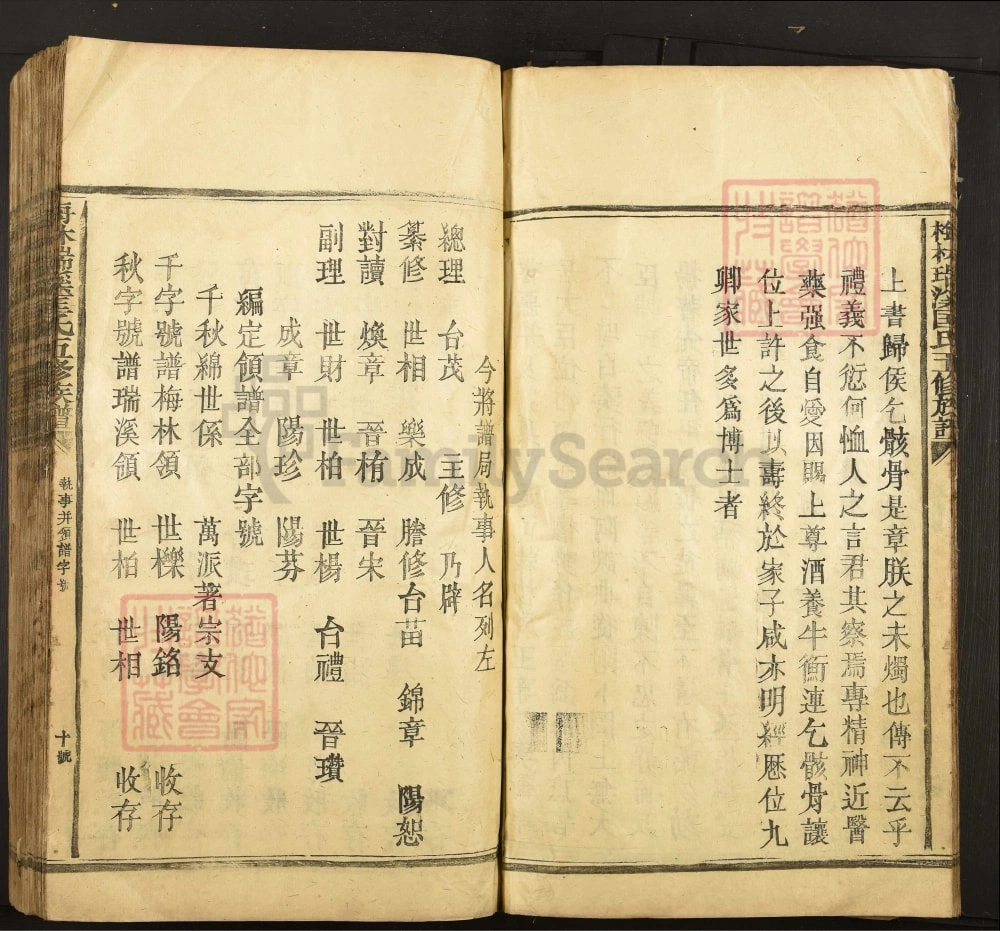 上書歸侯乞骸骨是章朕之未燭也傳不云乎
禮義不愆何恤人之言君其察焉專精神近醫
藥强食自愛因賜上尊酒養牛衡連乞骸骨讓
位上許之後以壽終於家子咸亦明經歷位九
卿家世多爲博士者
今將譜局執事人名列左
總理 台茂 主修 乃辟
纂修 世相 樂成 謄修 台苗 錦章 陽恕
對讀 煥章 晉栯 晉宋
副理 世財 世柏 世楊 台禮 晉瓚
成章 陽珍 陽芬
編定領譜全部字號
千秋綿世係 萬派著宗支
千字號譜梅林領 世櫟 陽銘 收存
秋字號譜瑞溪領 世柏 世相 收存
執事并領譜字號
十號
FamilySearch